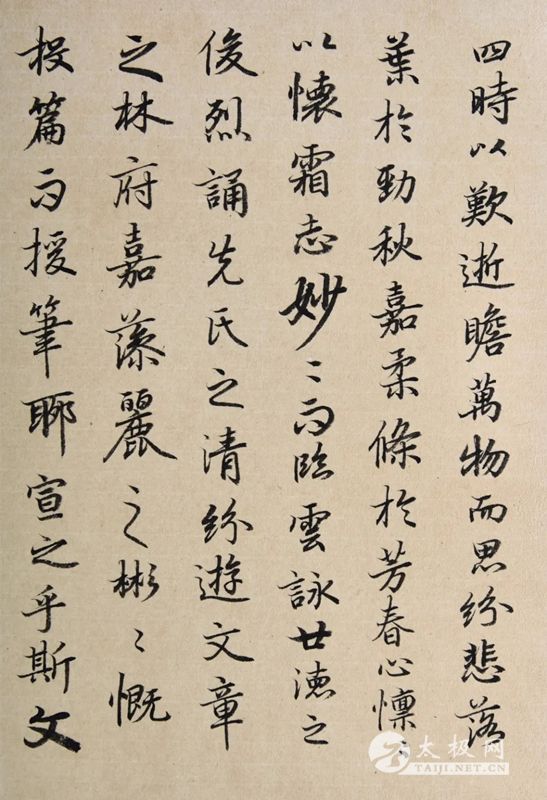 四時以歎逝瞻萬物而思紛悲落
葉於勁秋嘉柔條於芳春心懍〻
以懷霜志妙〻而臨雲詠世德之
俊烈誦先氏之清紛遊文章
之林府嘉藻麗之彬〻慨
投篇而援筆聊宣之乎斯文
太极网
TAIJI.NET.CN